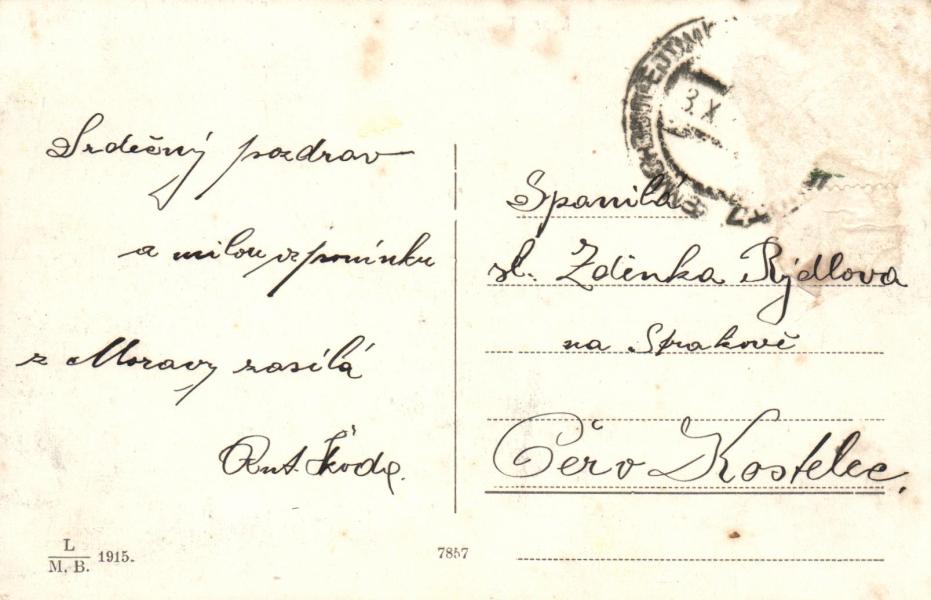 Srdečný pozdrav
a milou vzpomínku
z Moravy zasílá
Ant. Škoda.
L
M. B. 1915.
7857
3. X
Spanilá
sl. Zdenka Rýdlova
na Strakově
Červ Kostelec.